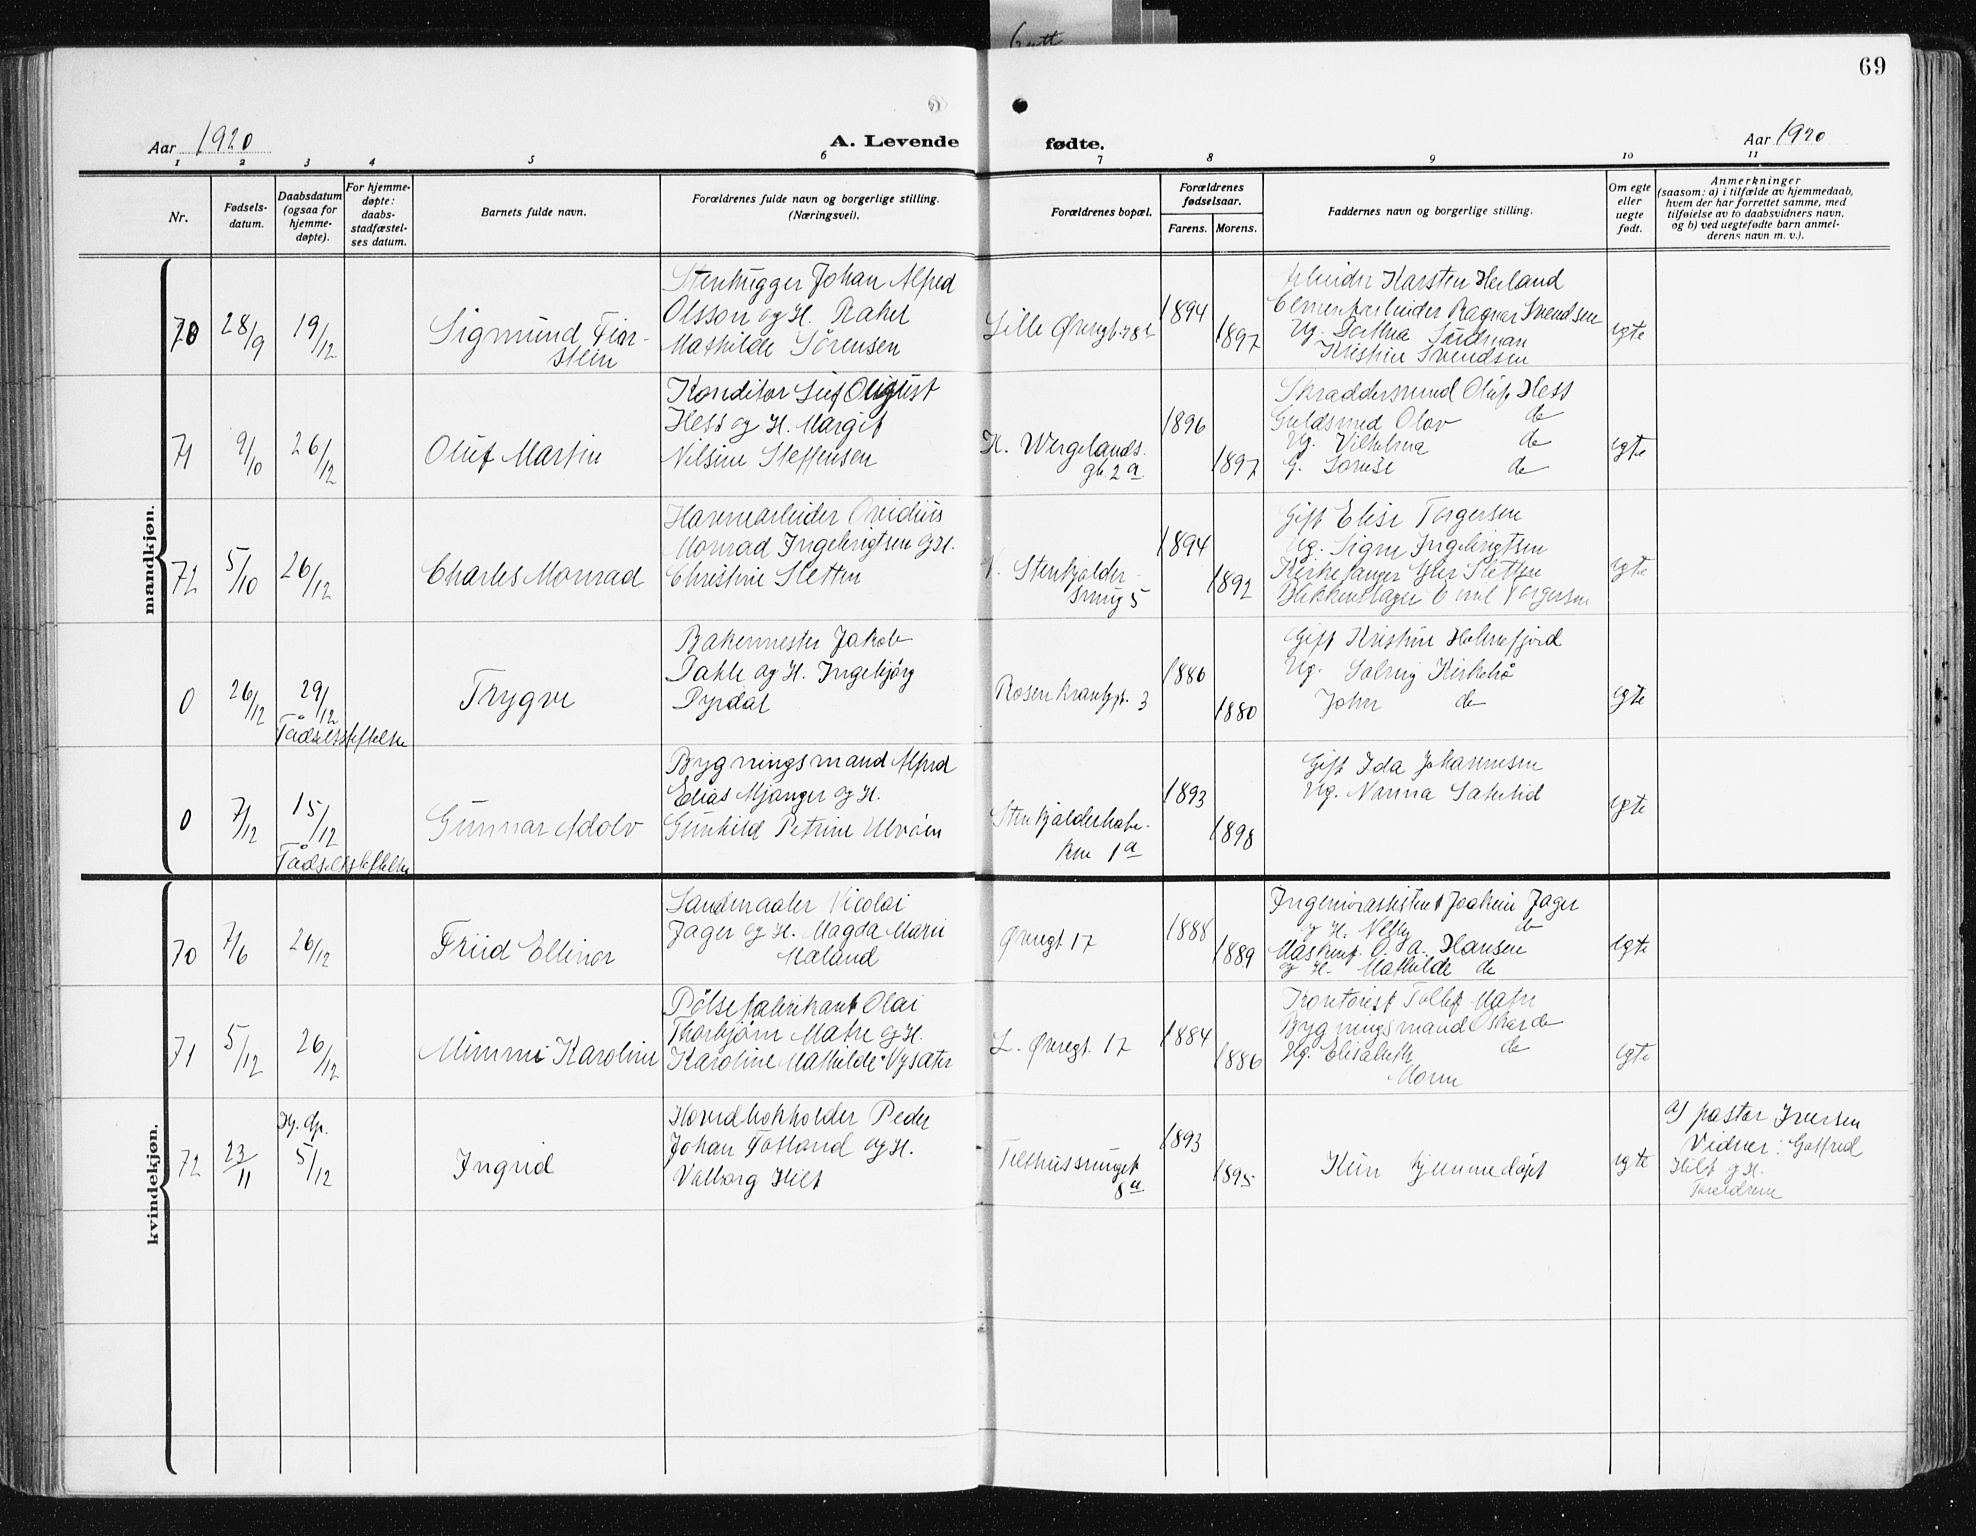 69
Aar 1920
A. Levende fødte.
Aar 1920
1 2 3 4 5 6 7 8 9 10 11
Nr.
Fødsels-
datum.
Daabsdatum
(ogsaa for
hjemme-
døpte).
For hjemme-
døpte:
daabs-
stadfæstel-
ses datum.
Barnets fulde navn.
Forældrenes fulde navn og borgerlige stilling.
(Næringsvei).
Forældrenes bopæl.
Forældrenes
fødselsaar.
Farens. Morens.
Faddernes navn og borgerlige stilling.
Om egte
eller
uegte
født.
Anmerkninger
(saasom: a) i tilfælde av hjemmedaab,
hvem der har forrettet samme, med
tilføielse av to daabsvidners navn,
og b) ved uegtefødte barn anmel-
derens navn m. v.).
mandkjøn.
70 28/9 19/12
Sigmund
stein
Stenhugger Johan Alfred
Olsson og H. Rakel
Mathilde Sørensen
Lille Øvregt.
1894 1897
Arbeider Karsten Heiland
Cementarbeider Ragnar Svendsen
Ug.
Kristine Svendsen
egte
71 9/10 26/12
Oluf Martin
Konditor Leif August
Hess og H. Margit
Nilsine Steffensen
H. Wergelands
gt. 2a
1896 1897
Skraddersvend Oluf Hess
Guldsmed Olav do
Ug. Vilhelma do
G. Lovise do
egte
72 5/10 26/12
Charles Monrad
Havnearbeider Ovidius
Monrad Ingebrigtsen og H.
Christine Sletten
V. Stenkjelder-
smug 5
1894 1892
Gift Elise Torgersen
Ug. Signe Ingebrigtsen
Kirkesanger Sletten
Blikkenslager Emil Torgersen
egte
0 26/12 29/12
Fødselsstiftelse
Trygve
Bakermester Jakob
Dahle og H. Ingebjørg
Dyrdal
Rosenkrantzgt. 3
1886 1880
Gift Kristine Holmefjord
Ug. Solveig Kirkebø
John do
egte
0 7/12 15/12
Fødselsstiftelse
Gunnar Adolv
Bygningsmand Alfred
Elias Mjanger og H.
Gunhild Petrine Ulvøen
Stenkjelderbak-
ken 1a
1893 1898
Gift Ida Johannesen
Ug. Nanna Sætelid
egte
kvindekjøn.
70 7/6 26/12
Friid Ellinor
Landmaaler Nicolai
Jager og H. Magda Marie
Maland
Øvregt 17
1888 1889
Ingeniørassistent Joakim Jager
og H. Nelly do
Maskinf. O. A. Hansen
og H. Mathilde do
egte
71 5/12 26/12
Mimmi Karoline
Pølsefabrikant Olai
Thorbjørn Matre og H.
Karoline Mathilde Nysæter
L. Øvregt. 17
1884 1886
Kontorist Tollef Matre
Bygningsmand Oskar do
Ug. Elisabeth do
Moren
egte
72 23/11
Hj. dp.
5/12
Ingrid
Hovedbokholder Peder
Johan Totland og H.
Valborg Hilt
Telthussmuget
8a
1893 1895
Kun hjemmedøpt
egte
a) pastor Iversen
Vidner: Gotfred
Hilt og H.
Forældrene